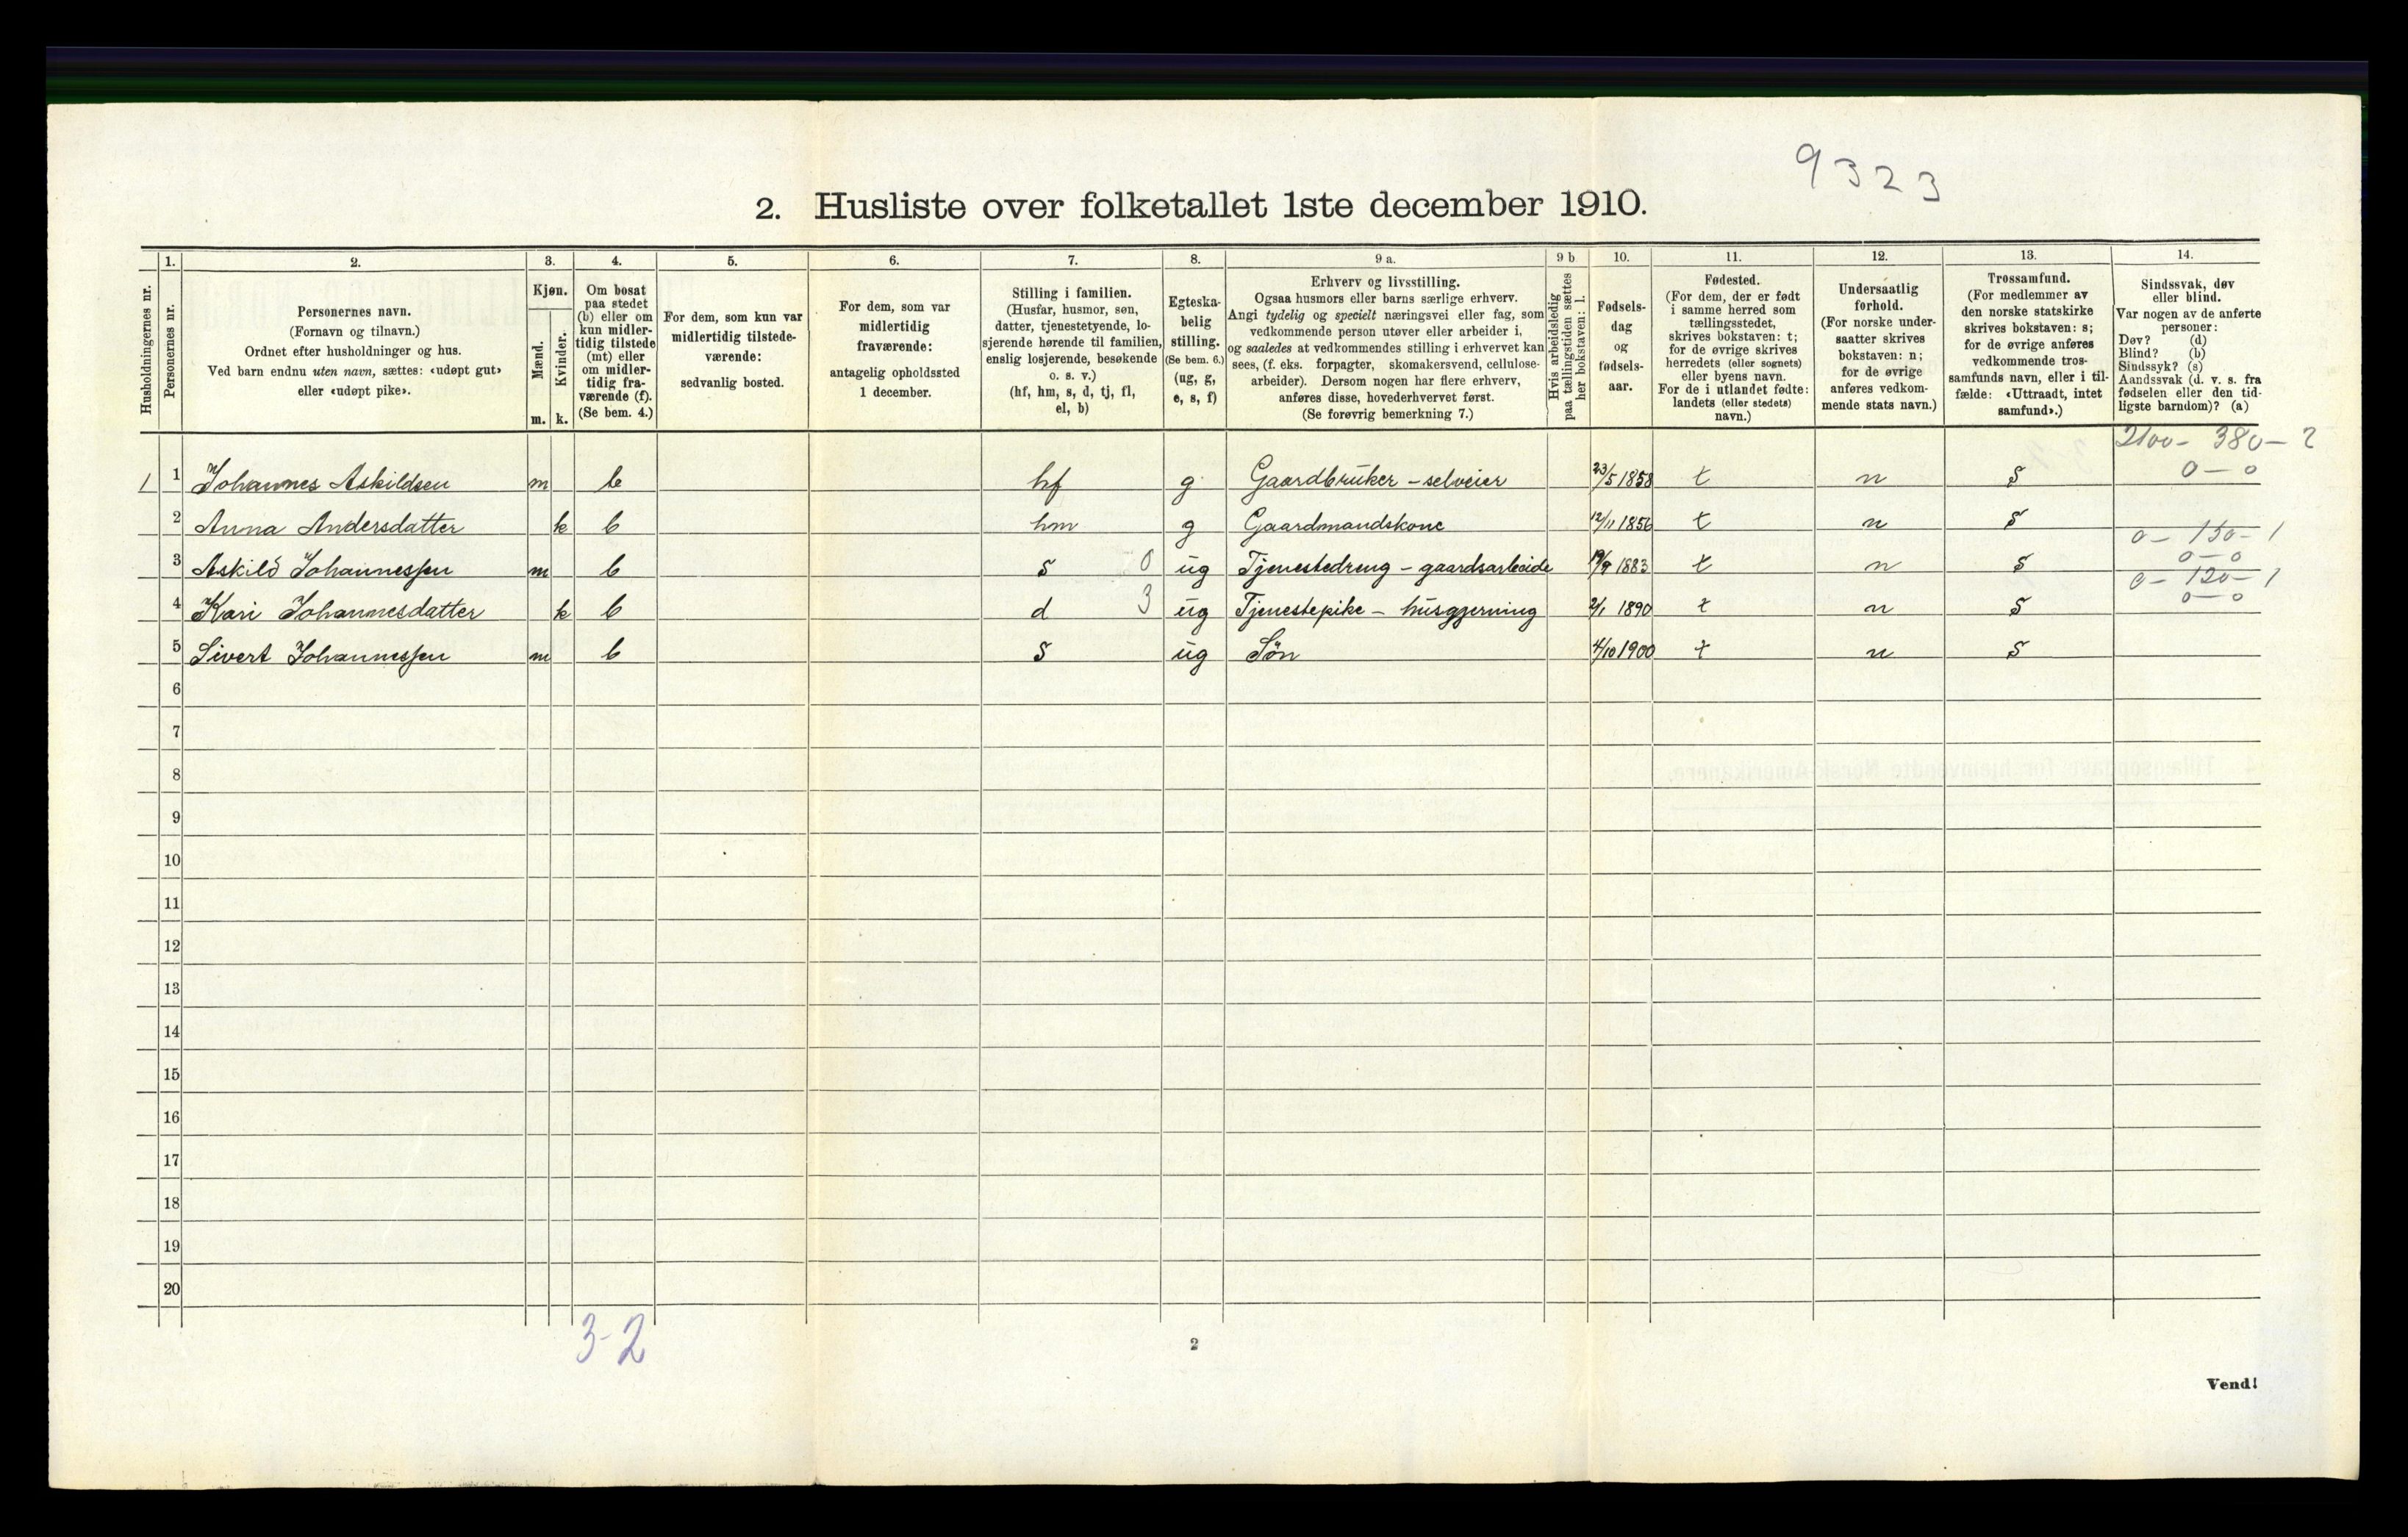 9323
2. Husliste over folketallet 1ste december 1910.
Husholdningernes nr.
1. Personernes nr.
2. Personernes navn. (Fornavn og tilnavn.) Ordnet efter husholdninger og hus. Ved barn endnu uten navn, sættes: «udøpt gut» eller «udøpt pike».
3. Kjøn. Mænd. m. Kvinder. k.
4. Om bosat paa stedet (b) eller om kun midlertidig tilstede (mt) eller om midlertidig fraværende (f). (Se bem. 4.)
5. For dem, som kun var midlertidig tilstedeværende: sedvanlig bosted.
6. For dem, som var midlertidig fraværende: antagelig opholdssted 1 december.
7. Stilling i familien. (Husfar, husmor, søn, datter, tjenestetyende, losjerende hørende til familien, enslig losjerende, besøkende o. s. v.) (hf, hm, s, d, tj, fl, el, b)
8. Egteskabelig stilling. (Se bem. 6.) (ug, g, e, s, f)
9 a. Erhverv og livsstilling. Ogsaa husmors eller barns særlige erhverv. Angi tydelig og specielt næringsvei eller fag, som vedkommende person utøver eller arbeider i, og saaledes at vedkommendes stilling i erhvervet kan sees, (f. eks. forpagter, skomakersvend, cellulosearbeider). Dersom nogen har flere erhverv, anføres disse, hovederhvervet først. (Se forøvrig bemerkning 7.)
9 b Hvis arbeidsledig paa tællingstiden sættes her bokstaven: l.
10. Fødselsdag og fødselsaar.
11. Fødested. (For dem, der er født i samme herred som tællingsstedet, skrives bokstaven: t; for de øvrige skrives herredets (eller sognets) eller byens navn. For de i utlandet fødte: landets (eller stedets) navn.)
12. Undersaatlig forhold. (For norske undersaatter skrives bokstaven: n; for de øvrige anføres vedkommende stats navn.)
13. Trossamfund. (For medlemmer av den norske statskirke skrives bokstaven: s; for de øvrige anføres vedkommende trossamfunds navn, eller i tilfælde: «Uttraadt, intet samfund».)
14. Sindssvak, døv eller blind. Var nogen av de anførte personer: Døv? (d) Blind? (b) Sindssyk? (s) Aandssvak (d. v. s. fra fødselen eller den tidligste barndom)? (a)
2100 - 380 - 2
0 - 0
1 1 Johannes Askildsen m b hf g Gaardbruker - selveier 23/5 1858 t n S
2 Anna Andersdatter k b hm g Gaardmandskone 12/11 1856 t n S
0 - 150 - 1
0 - 0
3 Askild Johannessen m b S 0 ug Tjenestedreng - gaardsarbeide 19/9 1883 t n S
0 - 120 - 1
0 - 0
4 Kari Johannesdatter k b d 3 ug Tjenestepike - husgjerning 2/1 1890 t n S
5 Sivert Johannessen m b S ug Søn 4/10 1900 t n S
6
7
8
9
10
11
12
13
14
15
16
17
18
19
20
3-2
2
Vend!